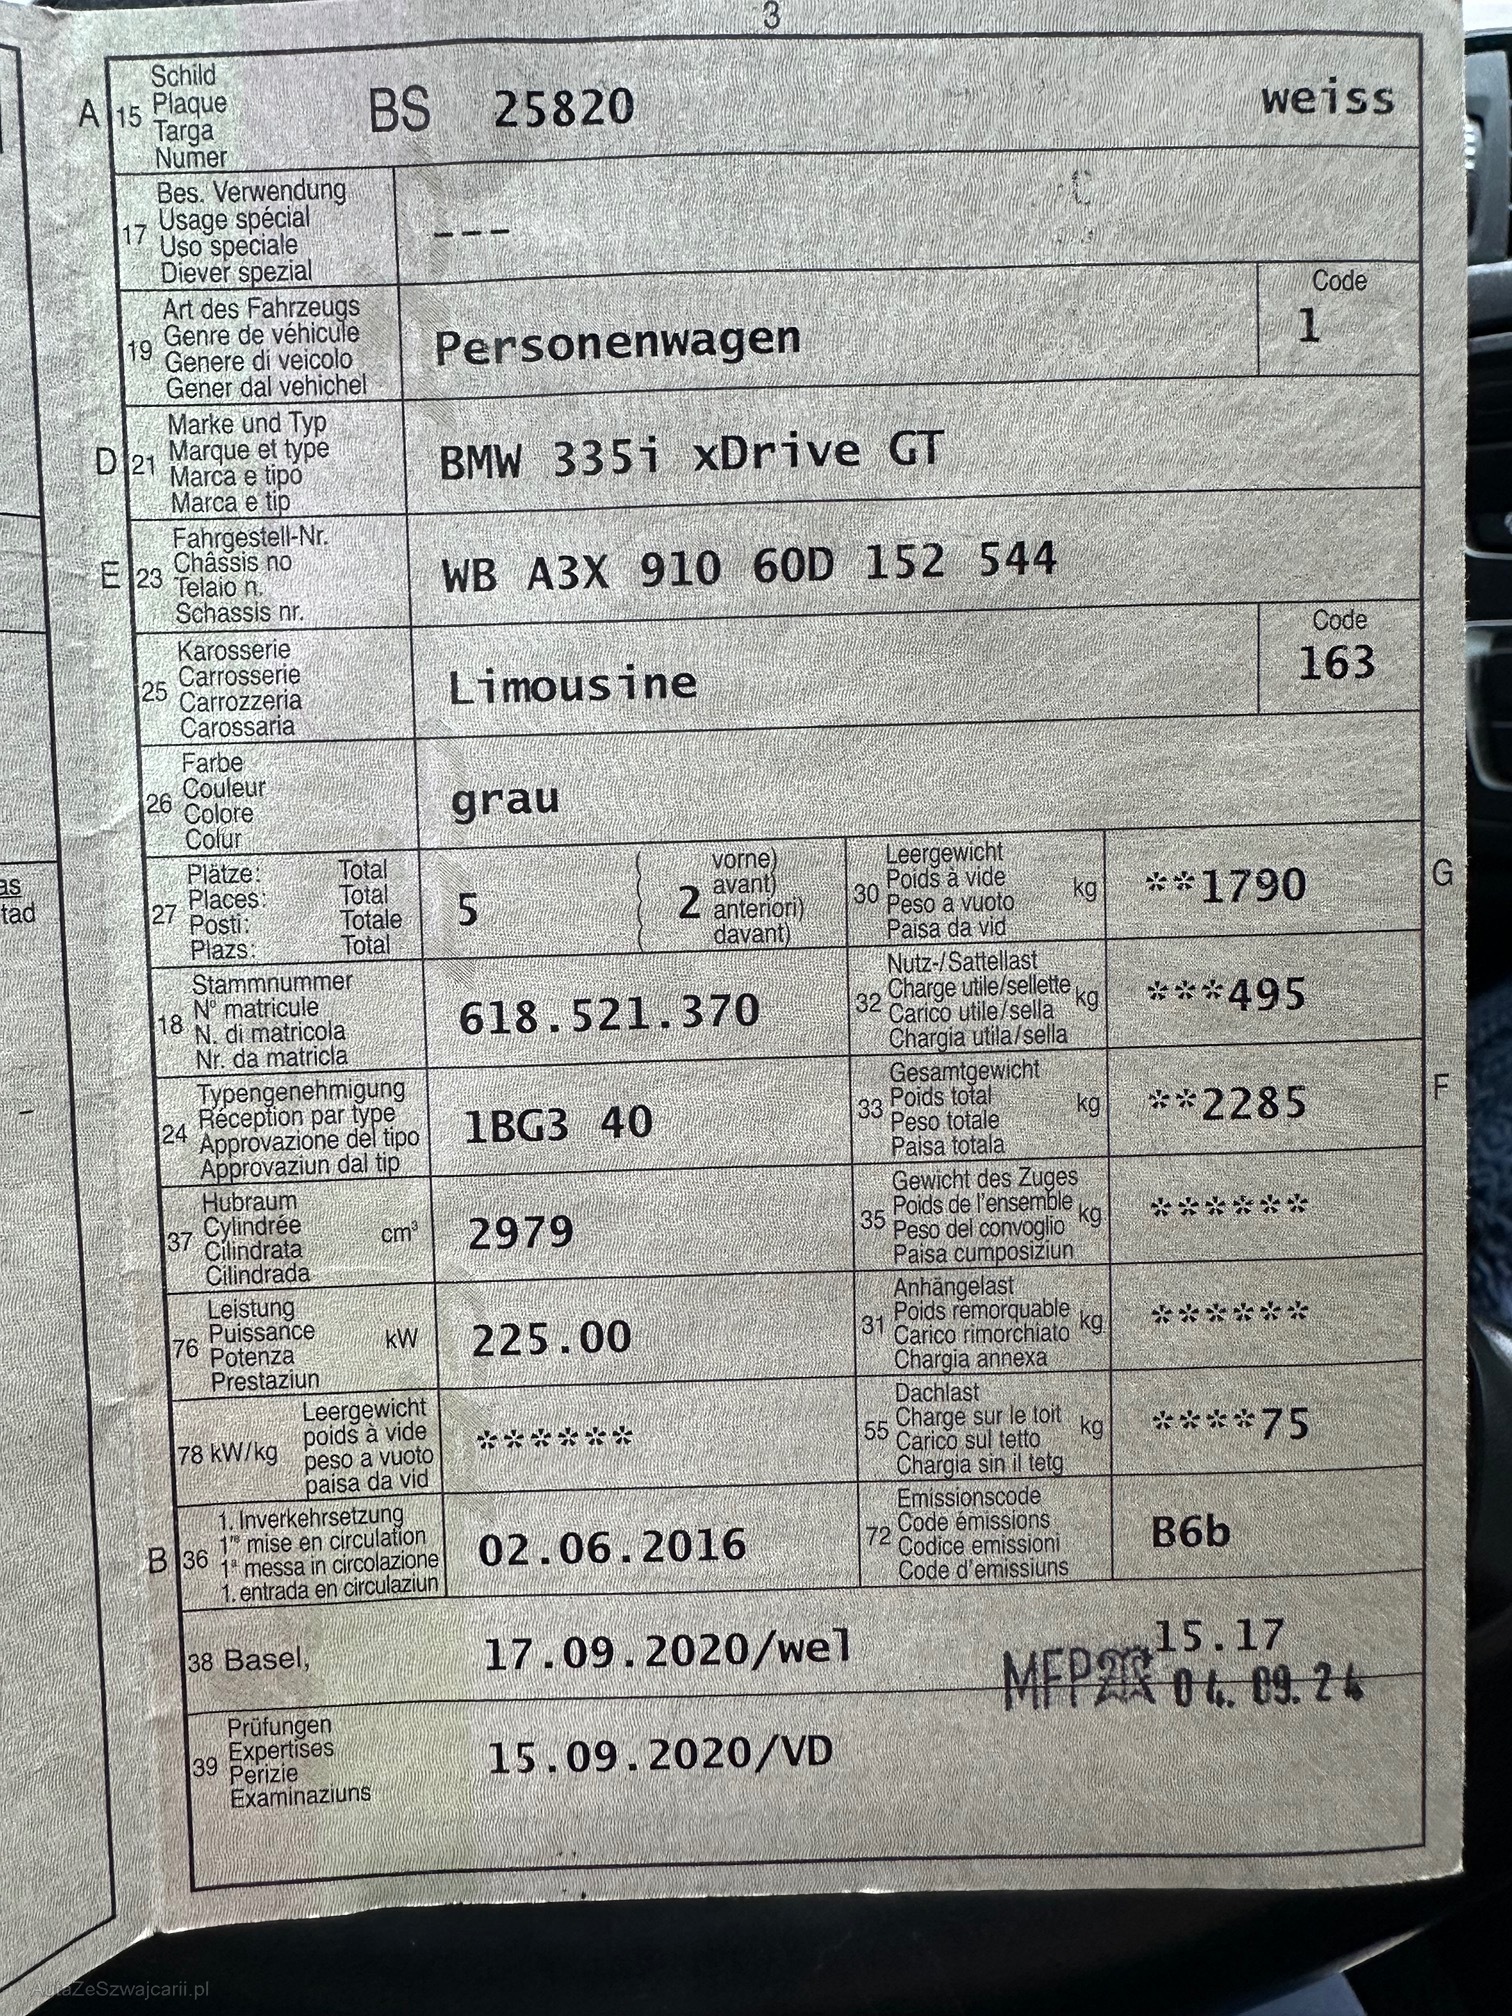 3
A 15 Schild
Plaque
Targa
Numer
BS 25820 weiss
17 Bes. Verwendung
Usage spécial
Uso speciale
Diever spezial
---
19 Art des Fahrzeugs
Genre de véhicule
Genere di veicolo
Gener dal vehichel
Personenwagen
Code
1
D 21 Marke und Typ
Marque et type
Marca e tipo
Marca e tip
BMW 335i xDrive GT
E 23 Fahrgestell-Nr.
Châssis no
Telaio n.
Schassis nr.
WB A3X 910 60D 152 544
25 Karosserie
Carrosserie
Carrozzeria
Carossaria
Limousine
Code
163
26 Farbe
Couleur
Colore
Colur
grau
27 Plätze: Total
Places: Total
Posti: Totale
Plazs: Total
5
2 vorne)
avant)
anteriori)
davant)
30 Leergewicht
Poids à vide
Peso a vuoto
Paisa da vid
kg
**1790
G
18 Stammnummer
Nº matricule
N. di matricola
Nr. da matricla
618.521.370
32 Nutz-/Sattellast
Charge utile/sellette
Carico utile/sella
Chargia utila/sella
kg
***495
24 Typengenehmigung
Réception par type
Approvazione del tipo
Approvaziun dal tip
1BG3 40
33 Gesamtgewicht
Poids total
Peso totale
Paisa totala
kg
**2285
F
37 Hubraum
Cylindrée
Cilindrata
Cilindrada
cm³
2979
35 Gewicht des Zuges
Poids de l'ensemble
Peso del convoglio
Paisa cumposiziun
kg
******
76 Leistung
Puissance
Potenza
Prestaziun
kW
225.00
31 Anhängelast
Poids remorquable
Carico rimorchiato
Chargia annexa
kg
******
78 kW/kg Leergewicht
poids à vide
peso a vuoto
paisa da vid
******
55 Dachlast
Charge sur le toit
Carico sul tetto
Chargia sin il tetg
kg
****75
B 36 1. Inverkehrsetzung
1re mise en circulation
1a messa in circolazione
1. entrada en circulaziun
02.06.2016
72 Emissionscode
Code émissions
Codice emissioni
Code d'emissiuns
B6b
38 Basel,
17.09.2020/wel 15.17
04.09.24
39 Prüfungen
Expertises
Perizie
Examinaziuns
15.09.2020/VD
as
tad
AutaZeSzwajcarii.pl